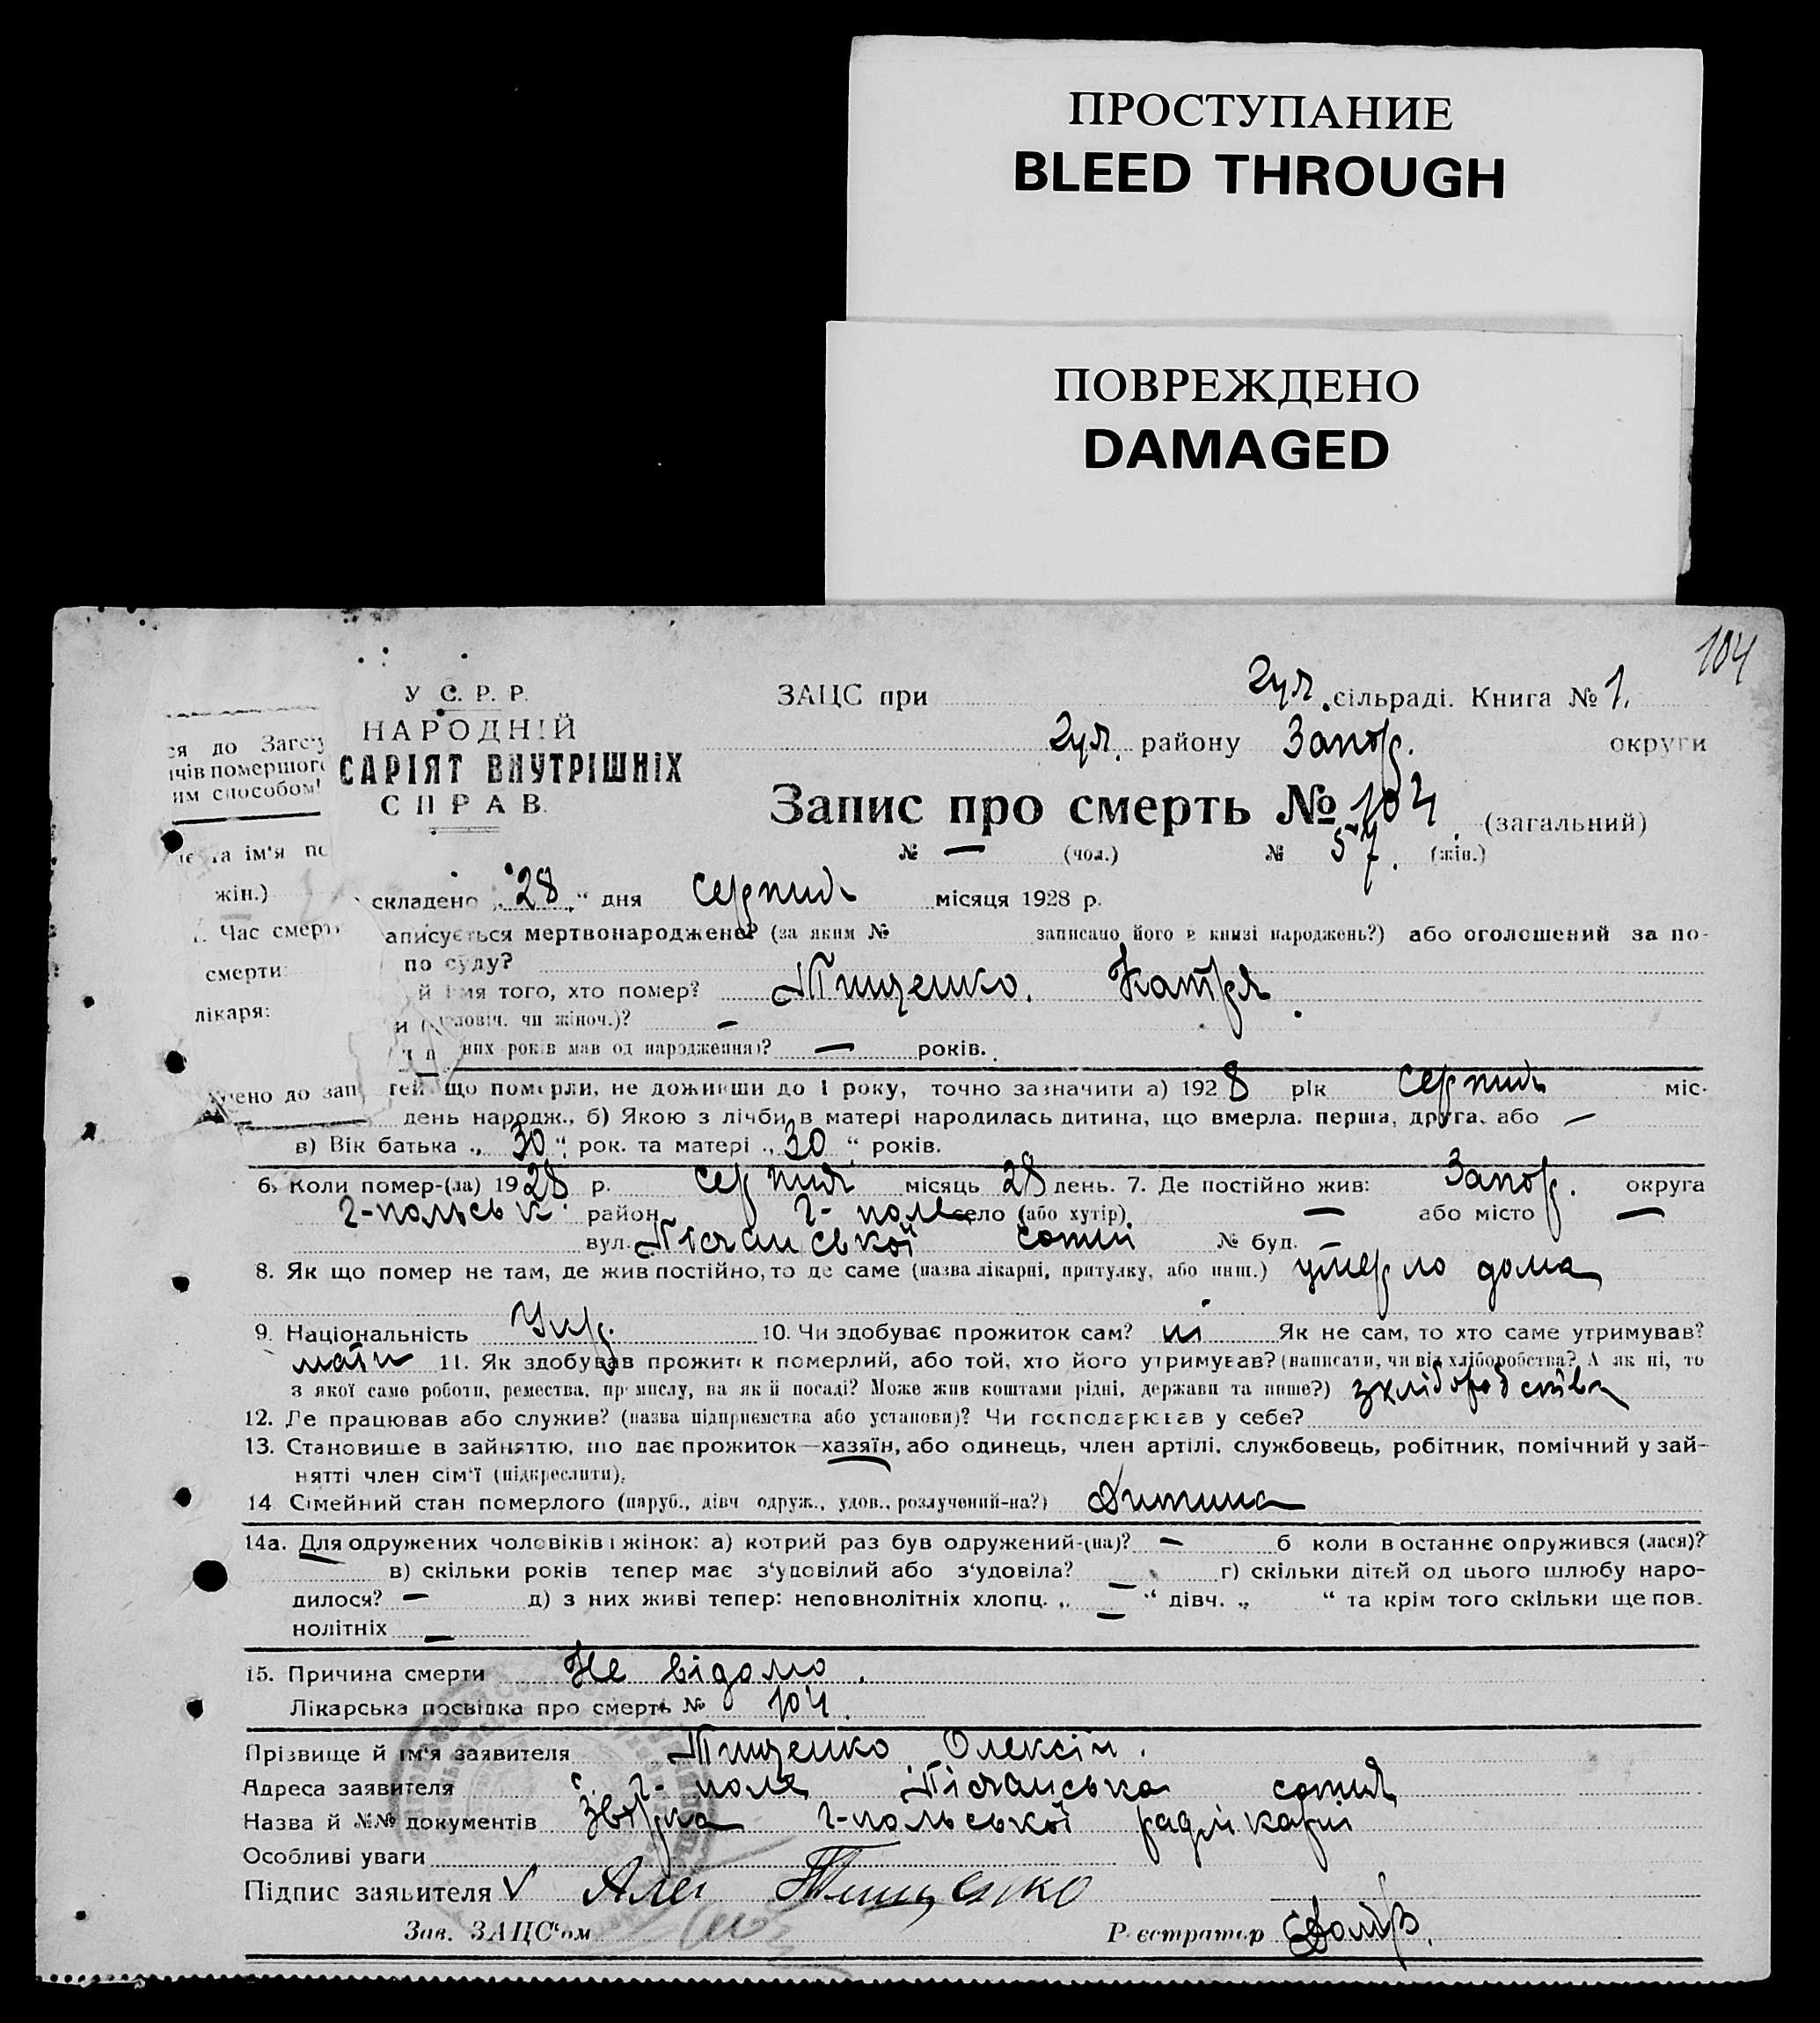 ПРОСТУПАНИЕ
BLEED THROUGH
ПОВРЕЖДЕНО
DAMAGED
104
У С. Р. Р.
НАРОДНІЙ
САРІЯТ ВНУТРІШНІХ
СПРАВ.
ся до Загс'у
ичів помершого
им способом!
та ім'я по
жін.)
Час смерт
смерти:
лікаря:
чено до зап
ЗАЦС при Гул. сільраді. Книга № 1.
Гул. району Запор. округи
Запис про смерть № 104. (загальний)
№ — (чол.) № 57. (жін.)
складено „28“ дня серпня місяця 1928 р.
аписується мертвонароджене? (за яким № записано його в книзі народжень?) або оголошений за по-
по суду?
й імя того, хто помер? Тищенко. Катря.
и (чоловіч. чи жіноч.)? —
них років мав од народження)? — років.
тей що померли, не доживши до 1 року, точно зазначити а) 1928 рік серпня міс.
день народж., б) Якою з лічби в матері народилась дитина, що вмерла. перша, друга, або —
в) Вік батька „30“ рок. та матері „30“ років.
6. Коли помер-(ла) 1928 р. серпня місяць 28 день. 7. Де постійно жив: Запор. округа
Г-польськ. район Г-поле село (або хутір) — або місто —
вул. Пісчанської сотні № буд.
8. Як що помер не там, де жив постійно, то де саме (назва лікарні, притулку, або инш.) умерло дома
9. Національність Укр. 10. Чи здобуває прожиток сам? ні Як не сам, то хто саме утримував?
мати 11. Як здобував прожиток померлий, або той, хто його утримував? (написати, чи від хліборобства? А як ні, то
з якої саме роботи, ремества, промислу, на якій посаді? Може жив коштами рідні, держави та инше?) зхліборобства
12. Де працював або служив? (назва підприємства або установи)? Чи господарював у себе?
13. Становище в зайняттю, що дає прожиток—хазяїн, або одинець, член артілі, службовець, робітник, помічний у зай-
нятті член сім'ї (підкреслити).
14 Сімейний стан померлого (паруб., дівч одруж., удов., розлучений-на?) Дитина
14а. Для одружених чоловіків і жінок: а) котрий раз був одружений-(на)? — б коли в останнє одружився (лася)?
— в) скільки років тепер має з'удовілий або з'удовіла? — г) скільки дітей од цього шлюбу наро-
дилося? — д) з них живі тепер: неповнолітніх хлопц. „ — “ дівч. „ “ та крім того скільки ще пов.
нолітніх —
15. Причина смерти Не відомо.
Лікарська посвідка про смерть № 104.
Прізвище й ім'я заявителя Тищенко Олексій.
Адреса заявителя с. Г-поле Пісчанська сотня
Назва й №№ документів Г-польської
Особливі уваги
Підпис заявителя V Алек Тищенко
Зав. ЗАЦС'ом
Реєстратор